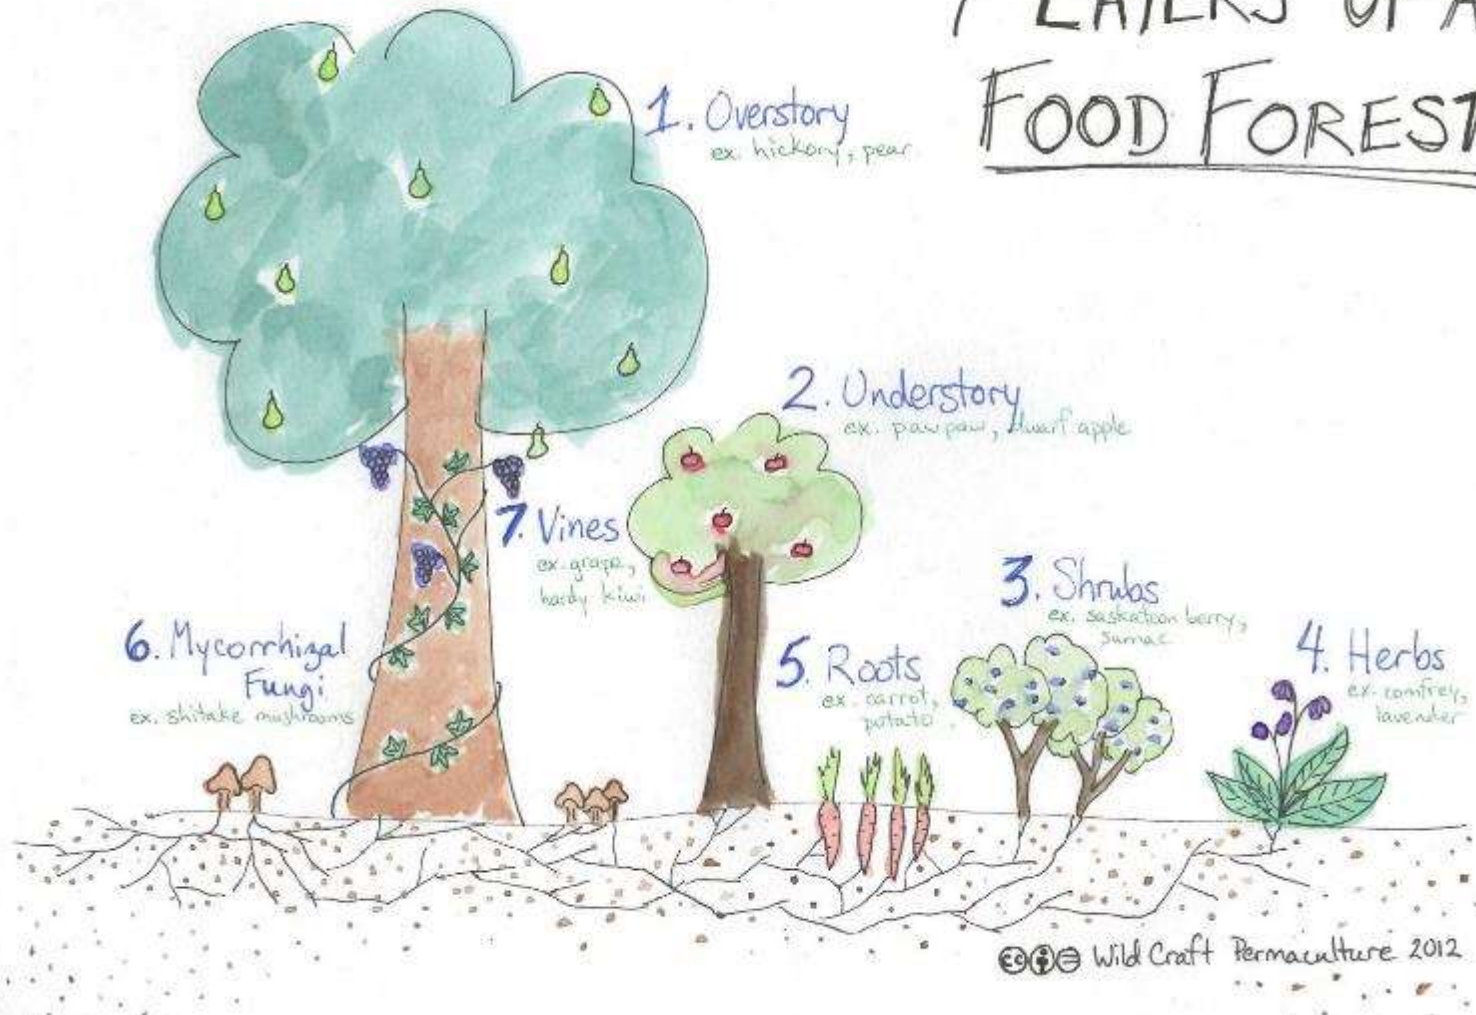 7 LAYERS OF A
FOOD FOREST
1. Overstory
ex. hickory, pear
2. Understory
ex. pawpaw, dwarf apple
7. Vines
ex. grape,
hardy kiwi
3. Shrubs
ex. saskatoon berry,
sumac
6. Mycorrhizal
Fungi
ex. shitake mushrooms
5. Roots
ex. carrot,
potato
4. Herbs
ex. comfrey,
lavender
cc Wild Craft Permaculture 2012